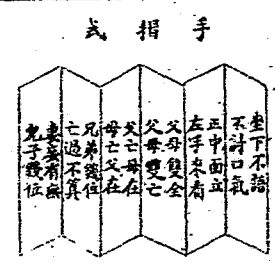 手指式
坐下不語
不討口氣
正中面立
左手來看
父母雙全
父母雙亡
父亡母在
母亡父在
兄弟幾位
亡過不算
妻妾有無
兒子幾位